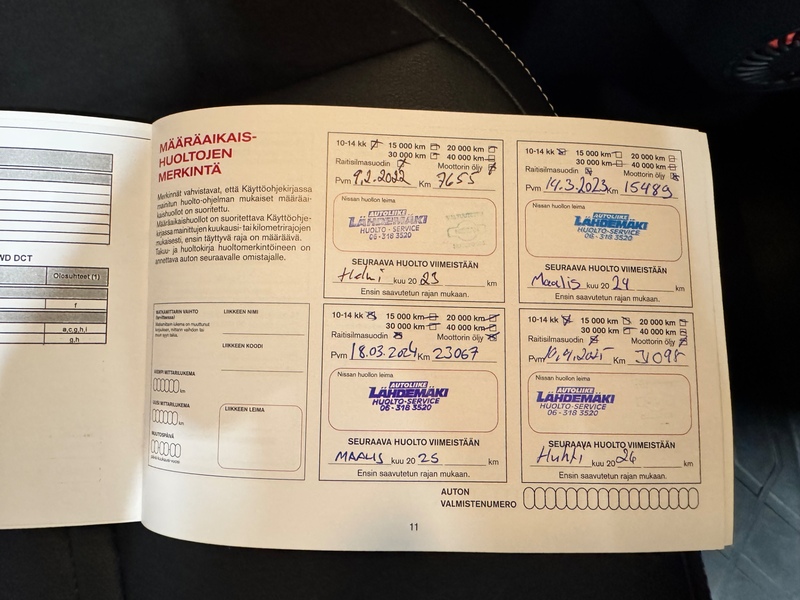 WD DCT
Olosuhteet (1)
f
a,c,g,h,i
g,h
MÄÄRÄAIKAIS-
HUOLTOJEN
MERKINTÄ
Merkinnät vahvistavat, että Käyttöohjekirjassa
mainitun huolto-ohjelman mukaiset määräai-
kaishuollot on suoritettu.
Määräaikaishuollot on suoritettava Käyttöohje-
kirjassa mainittujen kuukausi- tai kilometrirajojen
mukaisesti, ensin täyttyvä raja on määräävä.
Takuu- ja huoltokirja huoltomerkintöineen on
annettava auton seuraavalle omistajalle.
MATKAMITTARIN VAIHTO
(tarvittaessa)
LIIKKEEN NIMI
LIIKKEEN KOODI
km
UUSI MITTARILUKEMA
km
MUUTOSPÄIVÄ
LIIKKEEN LEIMA
10-14 kk 15 000 km 20 000 km
30 000 km 40 000 km
Raitisilmasuodin Moottorin öljy
Pvm 9.2.2022 Km 7655
Nissan huollon leima
AUTOLIIKE
LÄHDEMÄKI
HUOLTO-SERVICE
06-318 3520
SEURAAVA HUOLTO VIIMEISTÄÄN
Helmi kuu 20 23 km
Ensin saavutetun rajan mukaan.
10-14 kk 15 000 km 20 000 km
30 000 km 40 000 km
Raitisilmasuodin Moottorin öljy
Pvm 14.3.2023 Km 15489
Nissan huollon leima
AUTOLIIKE
LÄHDEMÄKI
HUOLTO-SERVICE
06-318 3520
SEURAAVA HUOLTO VIIMEISTÄÄN
Maalis kuu 20 24 km
Ensin saavutetun rajan mukaan.
10-14 kk 15 000 km 20 000 km
30 000 km 40 000 km
Raitisilmasuodin Moottorin öljy
Pvm 18.03.2024 Km 23067
Nissan huollon leima
AUTOLIIKE
LÄHDEMÄKI
HUOLTO-SERVICE
06-318 3520
SEURAAVA HUOLTO VIIMEISTÄÄN
MAALIS kuu 20 25 km
Ensin saavutetun rajan mukaan.
10-14 kk 15 000 km 20 000 km
30 000 km 40 000 km
Raitisilmasuodin Moottorin öljy
Pvm Km
Nissan huollon leima
AUTOLIIKE
LÄHDEMÄKI
HUOLTO-SERVICE
06-318 3520
SEURAAVA HUOLTO VIIMEISTÄÄN
Huhti kuu 20 26 km
Ensin saavutetun rajan mukaan.
AUTON
VALMISTENUMERO
11